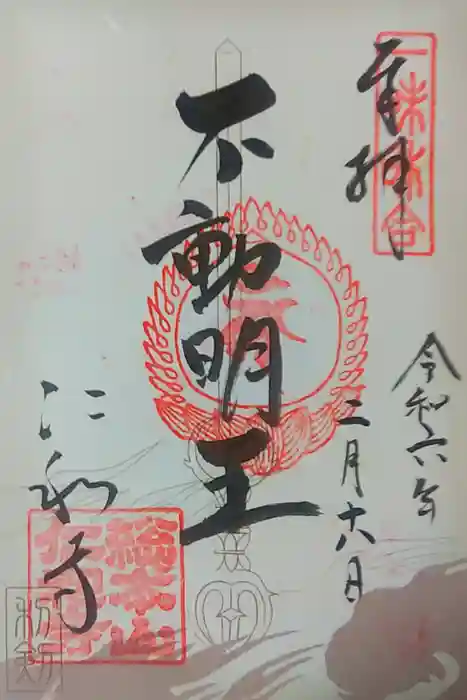 奉拝
一味和合
令和六年
二月十八日
不動明王
仁和寺
総本山
仁和寺